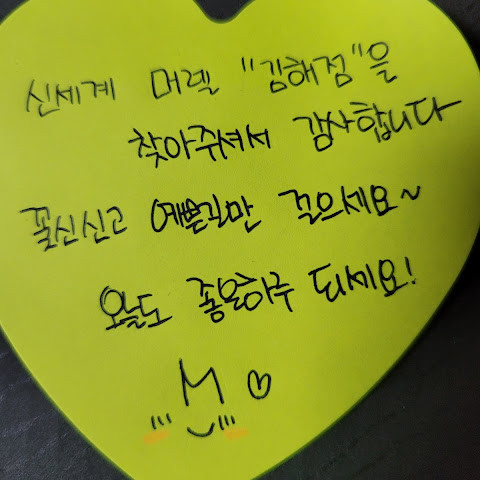 신세계 머렐 "김해점"을
찾아주셔서 감사합니다
꽃신신고 예쁜길만 걸으세요~
오늘도 좋은하루 되세요!
M ♡